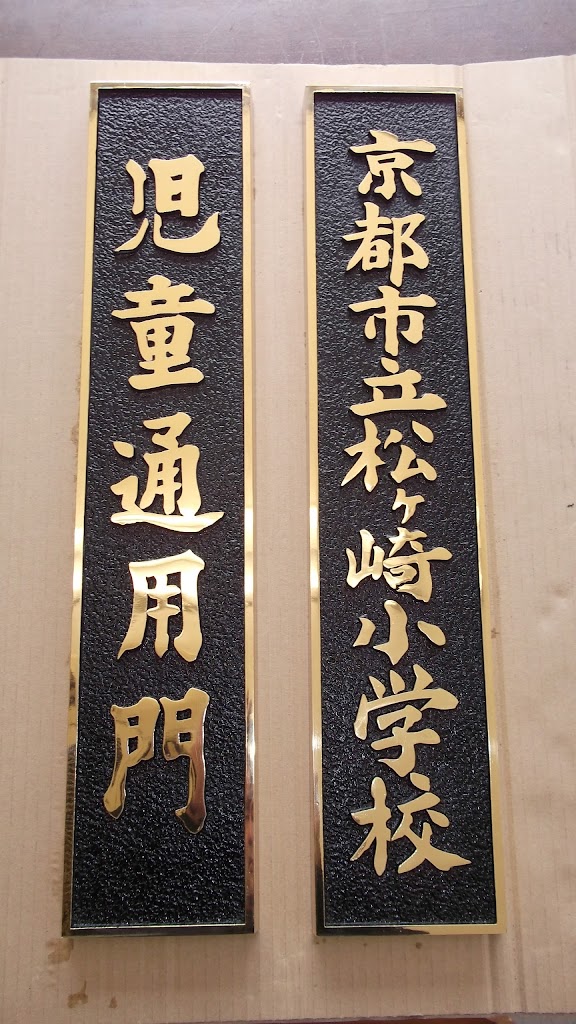 京都市立松ヶ崎小学校
児童通用門